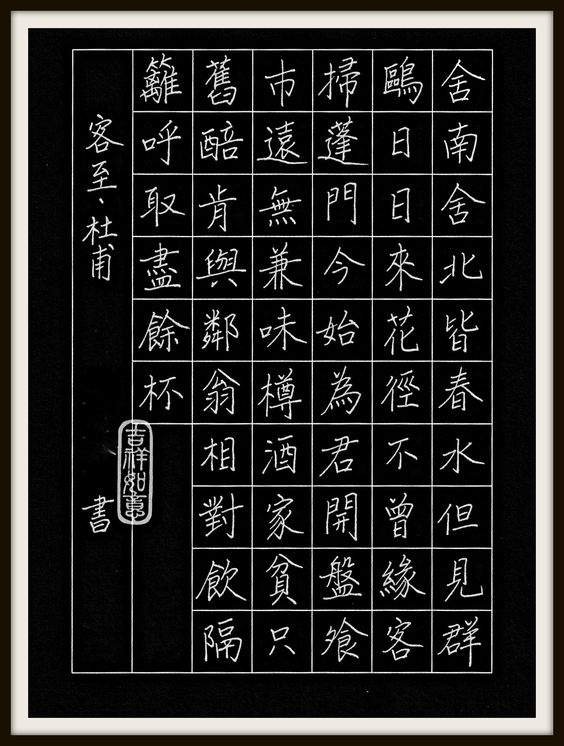 舍南舍北皆春水但見群
鷗日日來花徑不曾緣客
掃蓬門今始為君開盤飧
市遠無兼味樽酒家貧只
舊醅肯與鄰翁相對飲隔
籬呼取盡餘杯
客至、杜甫
書
吉祥如意